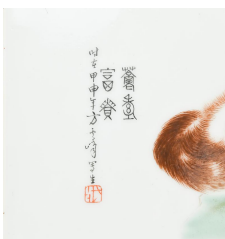 耄耋
富貴
时在甲申年方云峰写生